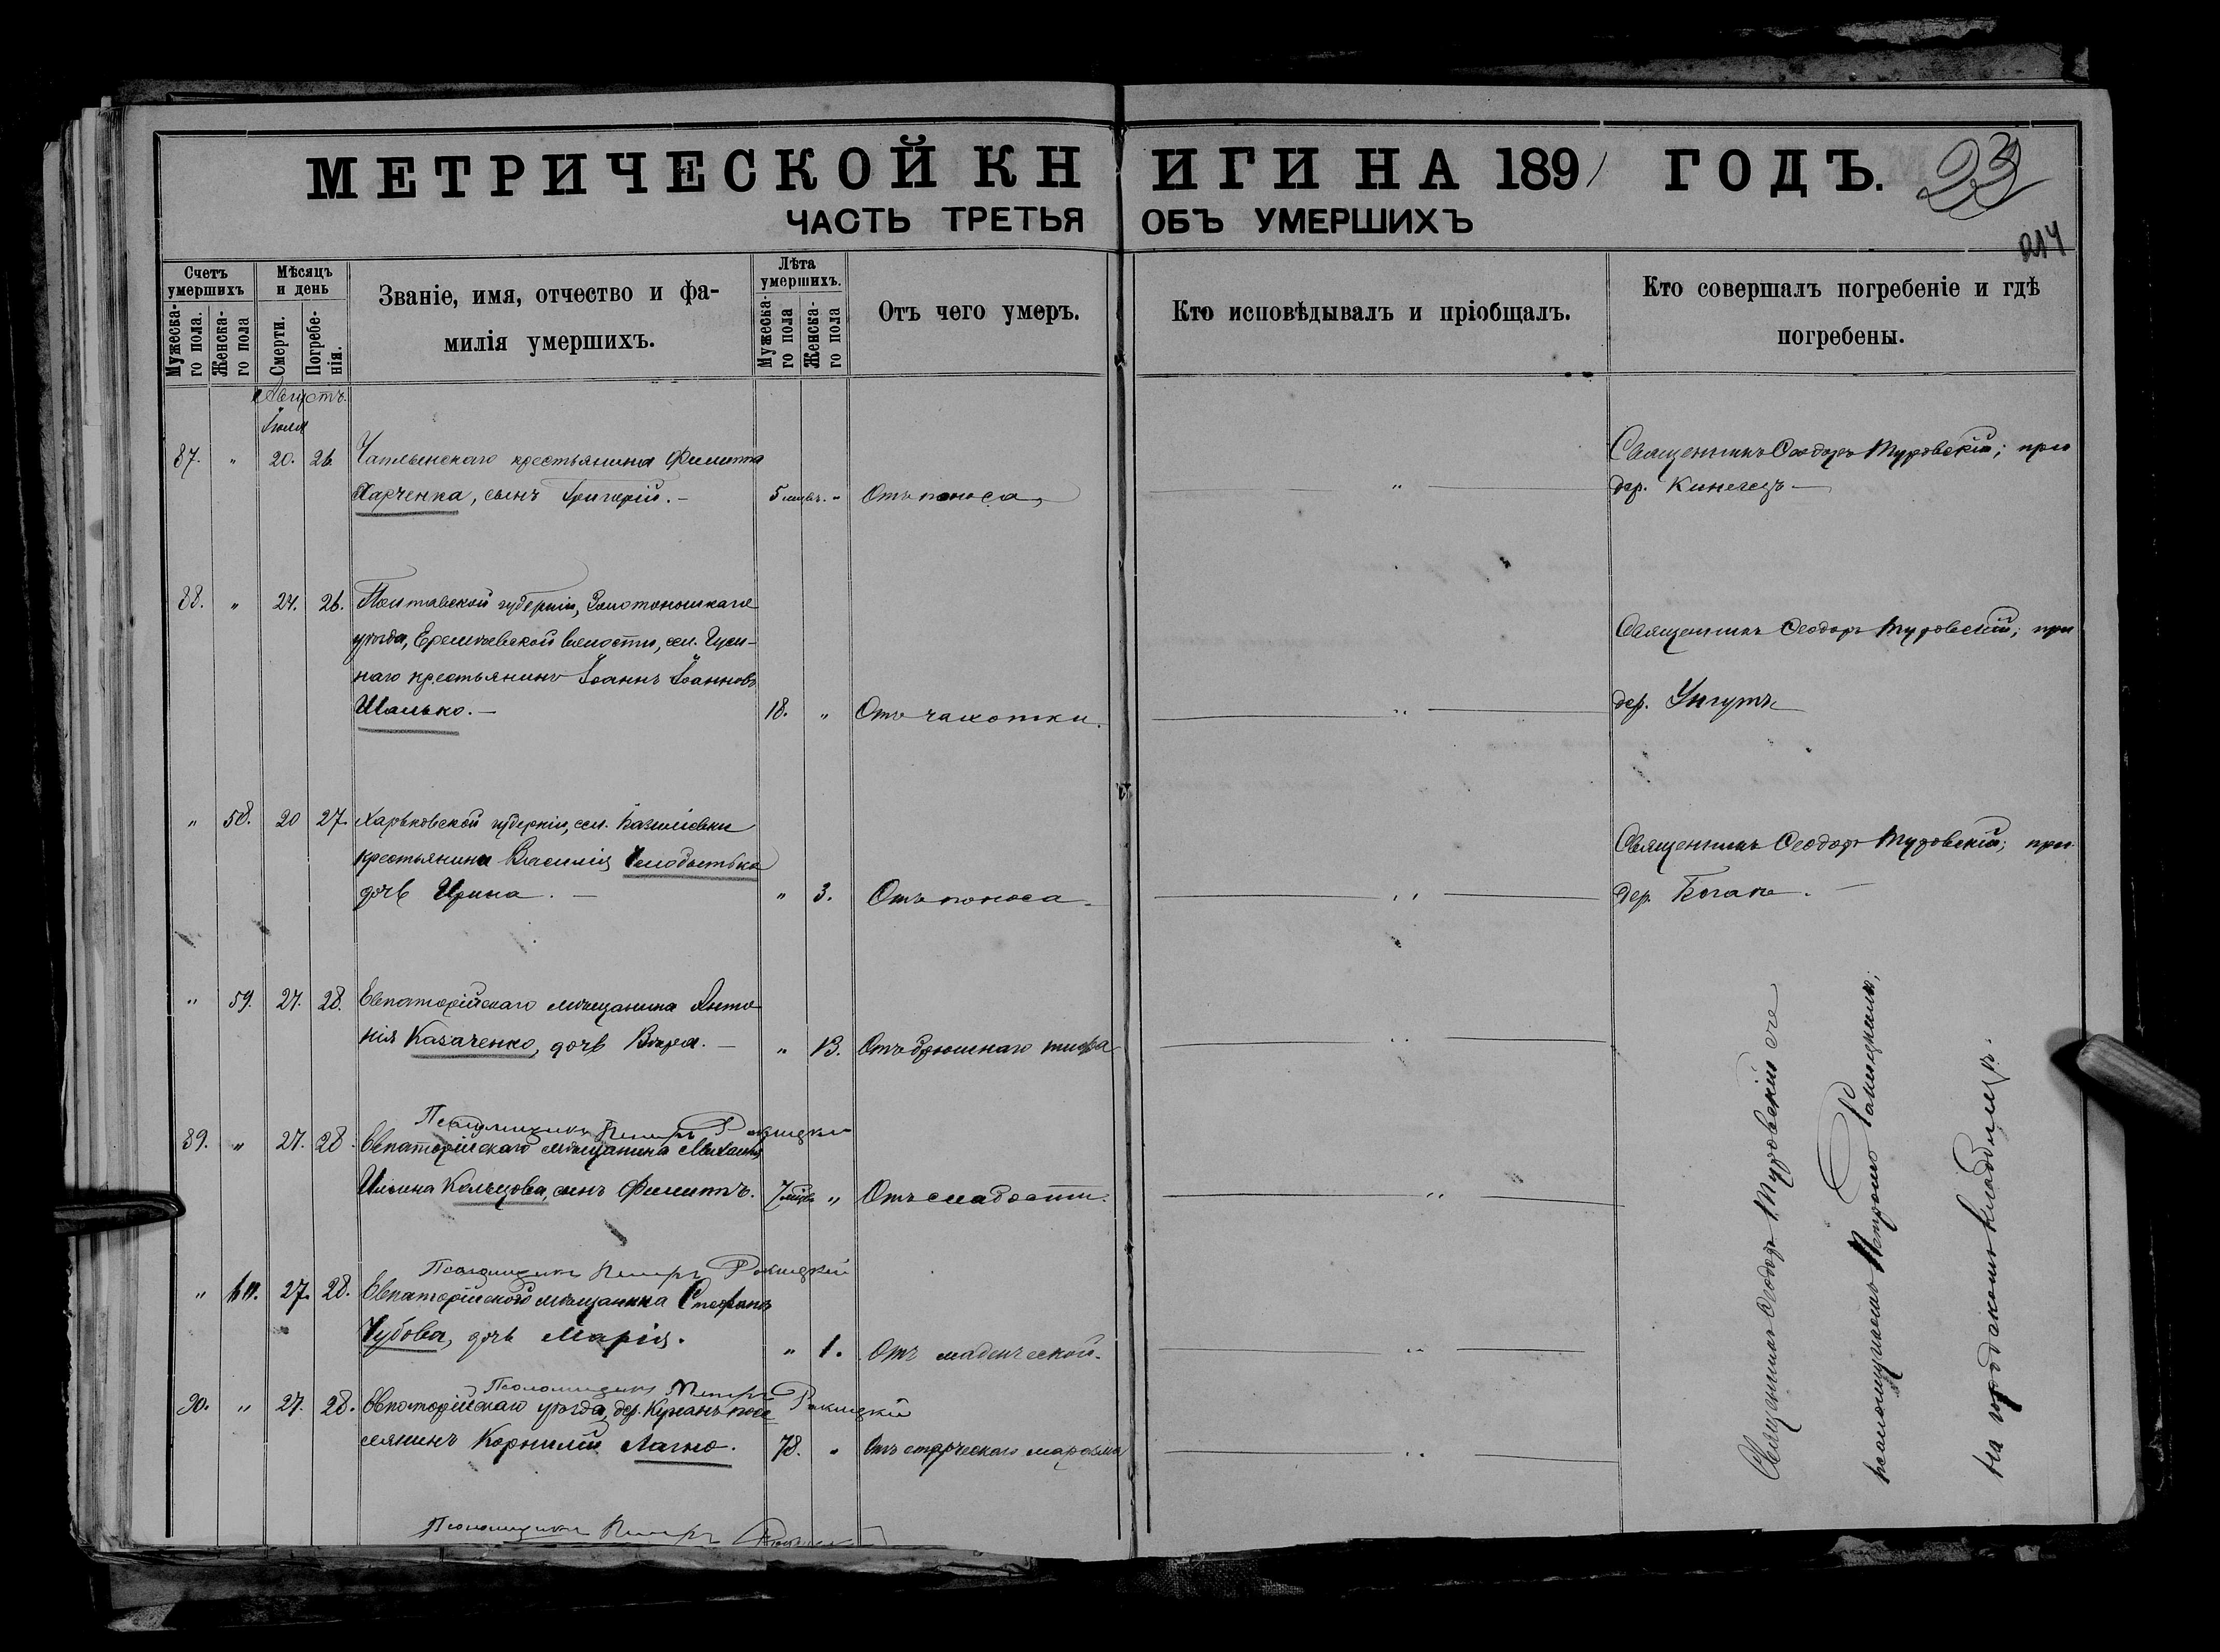 МЕТРИЧЕСКОЙ КНИГИ НА 1891 ГОДЪ.
23
ЧАСТЬ ТРЕТЬЯ ОБЪ УМЕРШИХЪ
214
Счетъ умершихъ
Мужеска-го пола.
Женска-го пола
Мѣсяцъ и день
Смерти.
Погребе-нія.
Званіе, имя, отчество и фа-
милія умершихъ.
Лѣта умершихъ.
Мужеска-го пола
Женска-го пола
Отъ чего умеръ.
Кто исповѣдывалъ и пріобщалъ.
Кто совершалъ погребеніе и гдѣ
погребены.
Августъ.
Іюля
87. " 20. 26 крестьянина Филиппа
Харченка, сынъ Григорій. — 5 мцвъ. " Отъ поноса, "
Священникъ Ѳеодоръ Туровскій; при
дер. Кинегезъ —
88. " 24. 26. Полтавской губерніи, Золотоношскаго
уѣзда, волости, сел.
наго крестьянинъ Іоаннъ Іоанновъ
Шалько. — 18. " Отъ чахотки. "
Священникъ Ѳеодоръ Туровскій; при
дер. Унгутъ
" 58. 20 27. Харьковской губерніи, сел.
крестьянина Василія
дочь Ирина. — " 3. Отъ поноса. "
Священникъ Ѳеодоръ Туровскій; при
дер. Богакъ. —
" 59. 27. 28. Евпаторійскаго мѣщанина Анто
нія Казаченко, дочь Вѣра. — " 13. Отъ брюшнаго тифа "
Псаломщикъ Петръ Ракицкій
89. " 27. 28. Евпаторійскаго мѣщанина Михаила
Ильина Кольцова, сынъ Филиппъ. 7 мцвъ " Отъ слабости. "
Псаломщикъ Петръ Ракицкій
" 60. 27. 28. Евпаторійскаго мѣщанина Стефана
Чубова, дочь Марія. " 1. Отъ младенческой. "
Псаломщикъ Петръ Ракицкій
90. " 27. 28. Евпаторійскаго уѣзда, дер. посе
селянинъ Корнилій Лагно. 78. " Отъ старческаго маразма "
Псаломщикъ Петръ Ракицкій
Священникъ Ѳеодоръ Туровскій съ
псаломщикомъ Петромъ Ракицкимъ;
на городскомъ кладбищѣ.